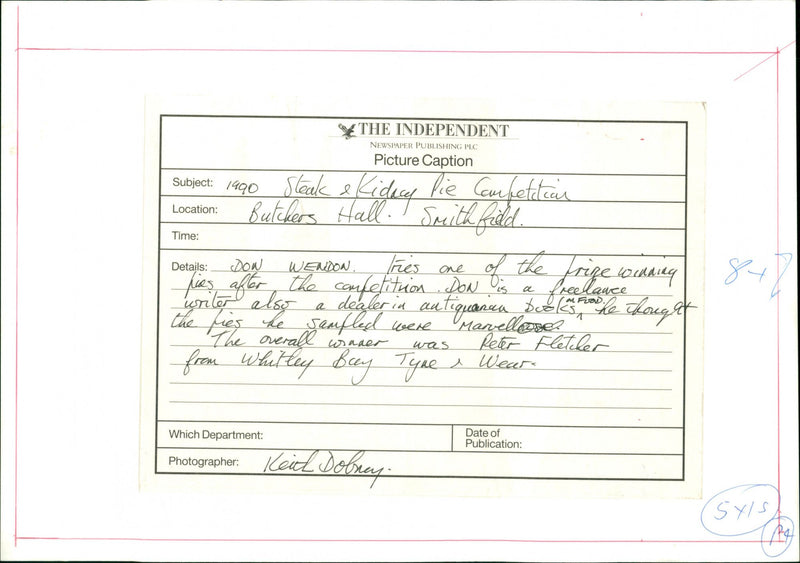 THE INDEPENDENT
NEWSPAPER PUBLISHING PLC
Picture Caption
Subject: 1990 Steak & Kidney Pie Competition
Location: Butchers Hall. Smithfield.
Time:
Details: DON WENDON. Tries one of the prize winning
pies after the competition. DON is a freelance
writer also a dealer in antiquarian books, on FOOD he thought
the pies he sampled were marvellous.
The overall winner was Peter Fletcher
from Whitley Bay Tyne & Wear.
Which Department:
Date of
Publication:
Photographer: Keith Dobney.
5x15
P4